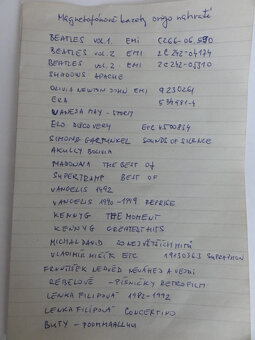 Magnetofónové kazety origo nahraté
BEATLES VOL. 1 EMI CZ66-06.590
BEATLES VOL. 2 EMI 2C 242-04174
BEATLES VOL. 2 EMI 2C 242-05310
SHADOWS APACHE
OLIVIA NEWTON JOHN EMI 9230261
ERA 534981-4
VANESA MAY - STORM
ELO DISCOVERY EPC 4500834
SIMONE GARFUNKEL SOUNDS OF SILENCE
AKULLY BOLIVIA
MADONNA THE BEST OF
SUPERTRAMP BEST OF
VANGELIS 1492
VANGELIS 1990-1999 REPRISE
KENNY G THE MOMENT
KENNY G GREATEST HITS
MICHAL DAVID 20 NEJVĚTŠÍCH HITŮ
VLADIMIR MIŠÍK ETC 19130363 SUPRAPHON
FRANTIŠEK NEDVĚD NEVÁHEJ A VEJDI
REBELOVÉ - PÍSNIČKY RETROFILM
LENKA FILIPOVÁ 1982-1992
LENKA FILIPOVÁ CONCERTINO
BUTY - PPOOMMAALLUU